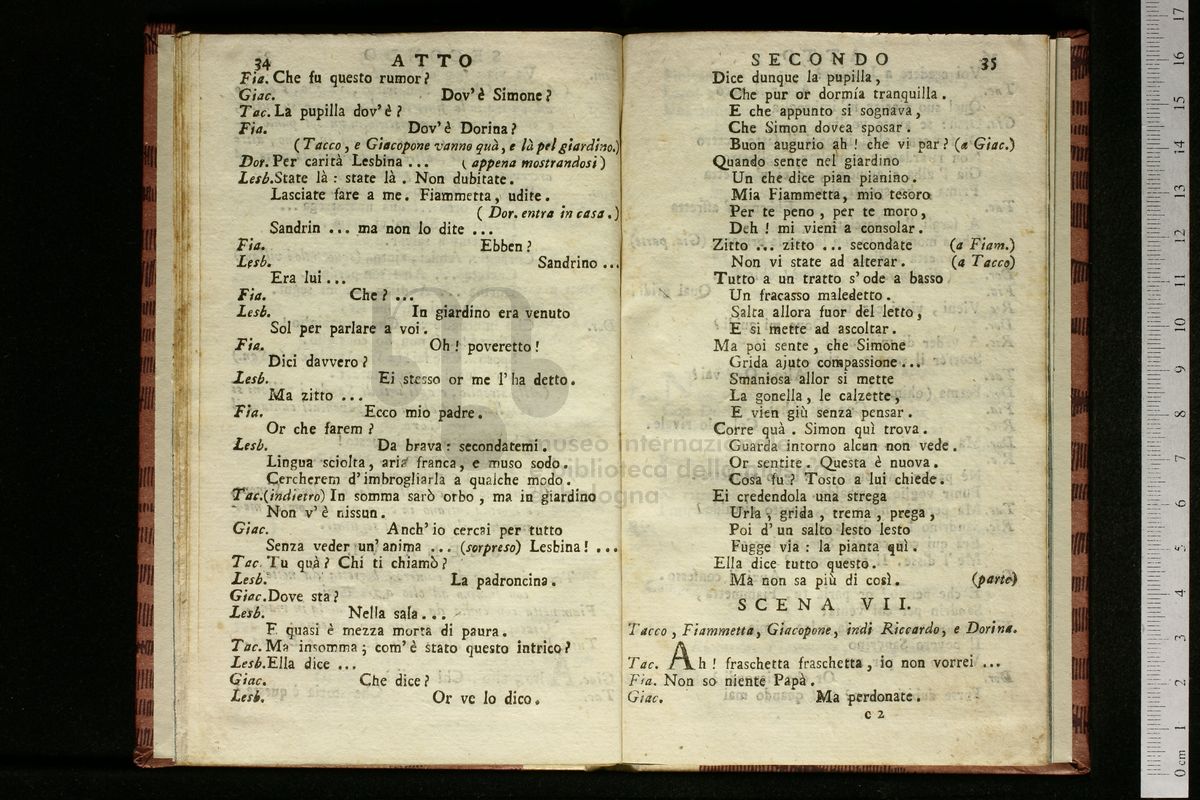 34 ATTO
Fia. Che fu questo rumor?
Giac. Dov'è Simone?
Tac. La pupilla dov'è?
Fia. Dov'è Dorina?
(Tacco, e Giacopone vanno quà, e là pel giardino.)
Dor. Per carità Lesbina ... (appena mostrandosi)
Lesb. State là : state là. Non dubitate.
Lasciate fare a me. Fiammetta, udite.
(Dor. entra in casa.)
Sandrin ... ma non lo dite ...
Fia. Ebben?
Lesb. Sandrino ...
Era lui ...
Fia. Che? ...
Lesb. In giardino era venuto
Sol per parlare a voi.
Fia. Oh! poveretto!
Dici davvero?
Lesb. Ei stesso or me l'ha detto.
Ma zitto ...
Fia. Ecco mio padre.
Or che farem?
Lesb. Da brava : secondatemi.
Lingua sciolta, aria franca, e muso sodo.
Cercherem d'imbrogliarla a qualche modo.
Tac. (indietro) In somma sarò orbo, ma in giardino
Non v'è nissun.
Giac. Anch'io cercai per tutto
Senza veder un'anima ... (sorpreso) Lesbina! ...
Tac. Tu quà? Chi ti chiamò?
Lesb. La padroncina.
Giac. Dove sta?
Lesb. Nella sala...
E quasi è mezza morta di paura.
Tac. Ma insomma; com'è stato questo intrico?
Lesb. Ella dice ...
Giac. Che dice?
Lesb. Or ve lo dico.
SECONDO 35
Dice dunque la pupilla,
Che pur or dormía tranquilla.
E che appunto si sognava,
Che Simon dovea sposar.
Buon augurio ah! che vi par? (a Giac.)
Quando sente nel giardino
Un che dice pian pianino.
Mia Fiammetta, mio tesoro
Per te peno, per te moro,
Deh! mi vieni a consolar.
Zitto ... zitto ... secondate (a Fiam.)
Non vi state ad alterar. (a Tacco)
Tutto a un tratto s'ode a basso
Un fracasso maledetto.
Salta allora fuor del letto,
E si mette ad ascoltar.
Ma poi sente, che Simone
Grida ajuto compassione ...
Smaniosa allor si mette
La gonella, le calzette,
E vien giù senza pensar.
Corre quà. Simon quì trova.
Guarda intorno alcun non vede.
Or sentite. Questa è nuova.
Cosa fu? Tosto a lui chiede.
Ei credendola una strega
Urla, grida, trema, prega,
Poi d'un salto lesto lesto
Fugge via : la pianta quì.
Ella dice tutto questo.
Mà non sa più di così. (parte)
SCENA VII.
Tacco, Fiammetta, Giacopone, indi Riccardo, e Dorina.
Tac. Ah! fraschetta fraschetta, io non vorrei ...
Fia. Non so niente Papà.
Giac. Ma perdonate.
c 2
museo internazionale
e biblioteca della musica
di bologna
0 cm 1 2 3 4 5 6 7 8 9 10 11 12 13 14 15 16 17